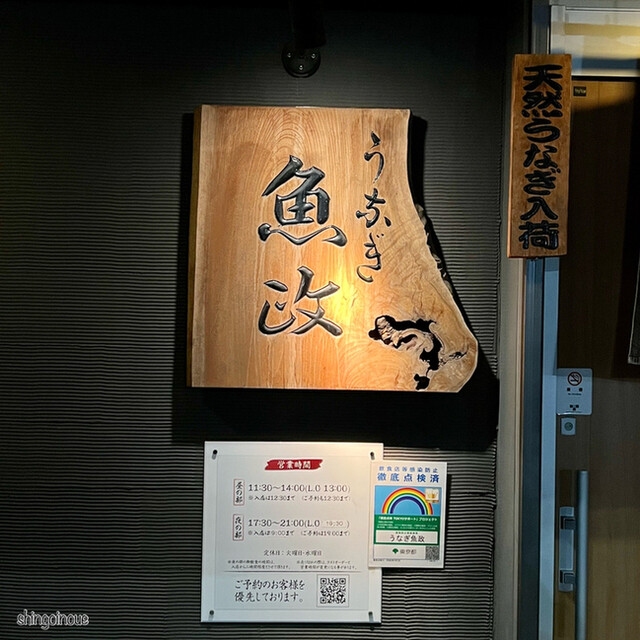 うなぎ
魚政
天然うなぎ入荷
営業時間
昼の部
11:30〜14:00(L.O 13:00)
※入店は12:30まで ご予約も12:30まで
夜の部
17:30〜21:00(L.O 19:30)
ご予約は19:00まで
定休日:火曜日・水曜日
ご予約のお客様を
優先しております。
飲食店等感染防止
徹底点検済
うなぎ魚政
東京都
shingoinoue